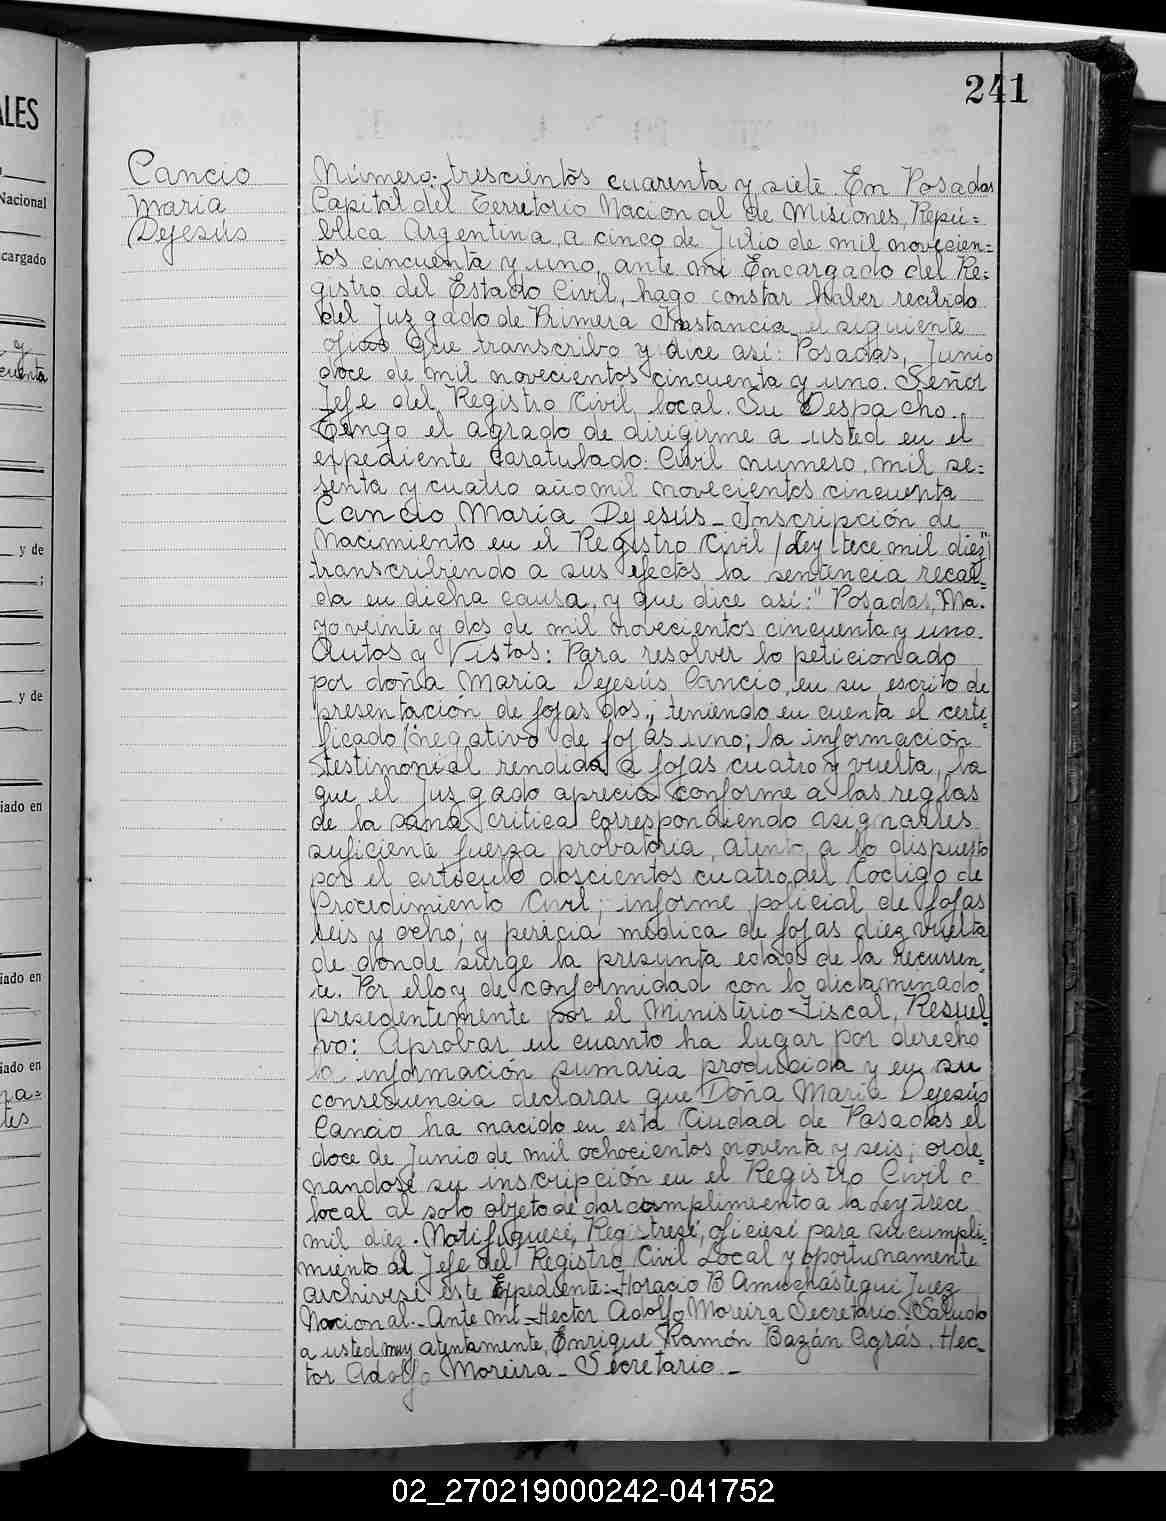 241
ALES
Nacional
cargado
y
cuenta
y de
;
y de
iado en
iado en
iado en
na=
tes
Cancio
Maria
Dejesús
Número: trescientos cuarenta y siete. En Posadas
Capital del Territorio Nacional de Misiones, Repú=
blica Argentina, a cinco de Julio de mil novecien=
tos cincuenta y uno, ante mi Encargado del Re=
gistro del Estado Civil, hago constar haber recibido
del Juzgado de Primera Instancia, el siguiente
oficio que transcribo y dice asi: Posadas, Junio
doce de mil novecientos cincuenta y uno. Señor
Jefe del Registro Civil local. Su Despacho.
Tengo el agrado de dirigirme a usted en el
expediente caratulado: Civil numero, mil se=
senta y cuatro año mil novecientos cincuenta
Cancio Maria Dejesús - Inscripción de
Nacimiento en el Registro Civil (Ley trece mil diez")
transcribiendo a sus efectos la sentencia recaí=
da en dicha causa, y que dice asi: " Posadas, Ma.
yo veinte y dos de mil novecientos cincuenta y uno.
Autos y Vistos: Para resolver lo peticionado
por doña Maria Dejesús Cancio, en su escrito de
presentación de fojas dos; teniendo en cuenta el certi=
ficado negativo de fojas uno; la información
testimonial rendida a fojas cuatro y vuelta, la
que el Juzgado aprecia conforme a las reglas
de la sana critica correspondiendo asignarles
suficiente fuerza probatoria, atento a lo dispuesto
por el articulo doscientos cuatro del Codigo de
Procedimiento Civil; informe policial de fojas
seis y ocho; y pericia médica de fojas diez vuelta
de donde surge la presunta edad de la recurren=
te. Por ello y de conformidad con lo dictaminado
presedentemente por el Ministerio Fiscal, Resuel
vo: Aprobar en cuanto ha lugar por derecho
la información sumaria producida y en su
consecuencia declarar que Doña Maria Dejesús
Cancio ha nacido en esta Ciudad de Posadas el
doce de Junio de mil ochocientos noventa y seis; orde=
nandose su inscripción en el Registro Civil
local al solo objeto de dar cumplimiento a la Ley trece
mil diez. Notifiquese, Registrese, oficiese para su cumpli=
miento al Jefe del Registro Civil Local y oportunamente
archivese este Expediente: Horacio B Amuchastegui Juez
Nacional.- Ante mi - Hector Adolfo Moreira Secretario. Saludo
a usted muy atentamente, Enrique Ramón Bazán Agrás. Hec=
tor Adolfo Moreira - Secretario. -
02_270219000242-041752